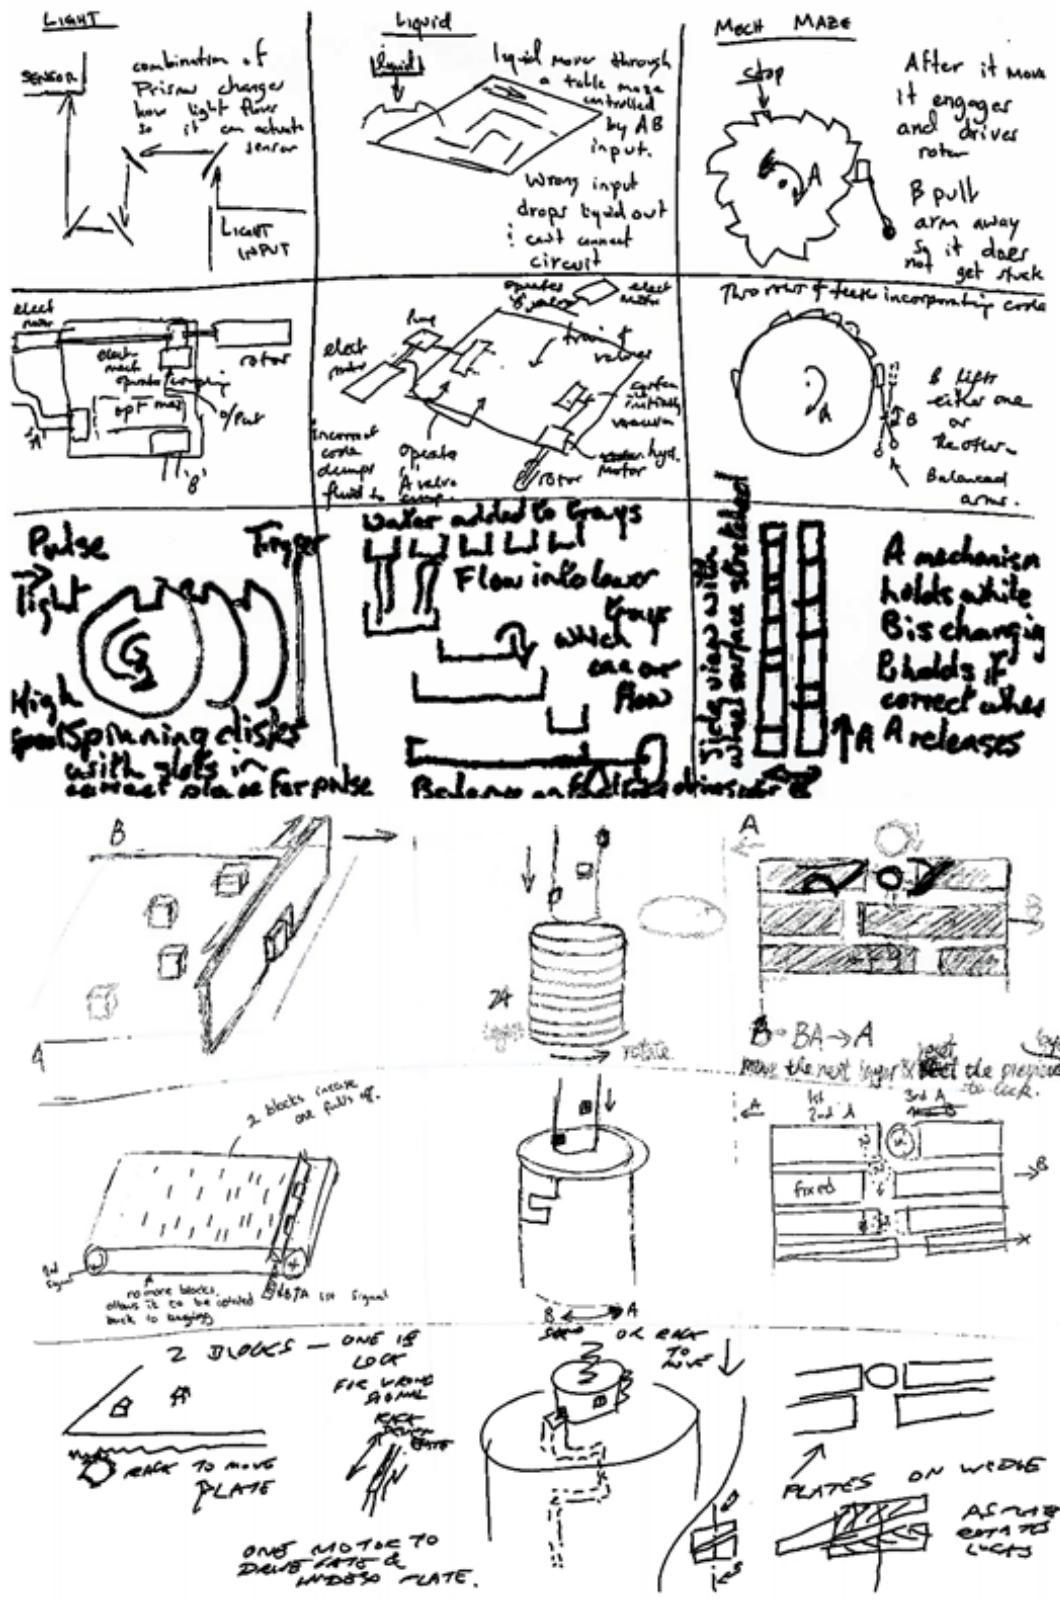 LIGHT
SENSOR
combination of
Prisms changes
how light flows
so it can actuate
sensor
LIGHT
INPUT
Liquid
liquid
liquid moves through
a table maze
controlled
by AB
input.
Wrong input
drops liquid out
& can't connect
circuit
MECH MAZE
stop
A
After it moves
it engages
and drives
rotor
B pull
arm away
so it does
not get stuck
elect
motor
rotor
elect
mech
operates coupling
opt maze
o/put
'A'
'B'
operates
'B' valve
elect
motor
Pump
elect
motor
train of
valves
vacuum
hyd.
motor
rotor
Incorrect
code
dumps
fluid to
Operates
'A' valve
Two rows of teeth incorporating code
A
B
B lifts
either one
or
the other.
Balanced
arms.
Pulse
light
Trigger
High
speed Spinning disks
with slots in
correct place for pulse
Water added to trays
Flow into lower
trays
which
one or
flow
Side view with
wheel surface stretched
A mechanism
holds white
B is changing
B holds if
correct when
A releases
A
B
A
2A
rotate
A
B
B-BA→A
move the next layer & the
to lock.
2 blocks incase
one falls off.
2nd
signal
no more blocks.
allows it to be rotated
back to beginning
1st signal
B
A
A
1st
2nd A
3rd A
fixed
B
2 BLOCKS — ONE IS
LOCK
FOR WRONG
SIGNAL
RACK TO MOVE
PLATE
RACK
DRIVEN
GATE
ONE MOTOR TO
DRIVE GATE &
INDEX PLATE.
OR RACK
TO
MOVE
PLATES ON WEDGE
AS PLATE
ROTATES
LOCKS